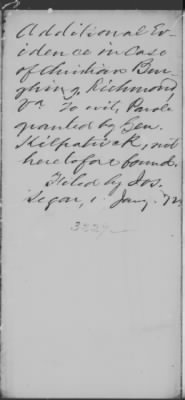 Additional Ev-
idence in Case
of Christian Bur-
ghing, Richmond,
Va To wit, Parole
granted by Gen.
Kilpatrick, not
heretofore found.
Filed by Jos.
Segar, 1 Jany. 72.
3229